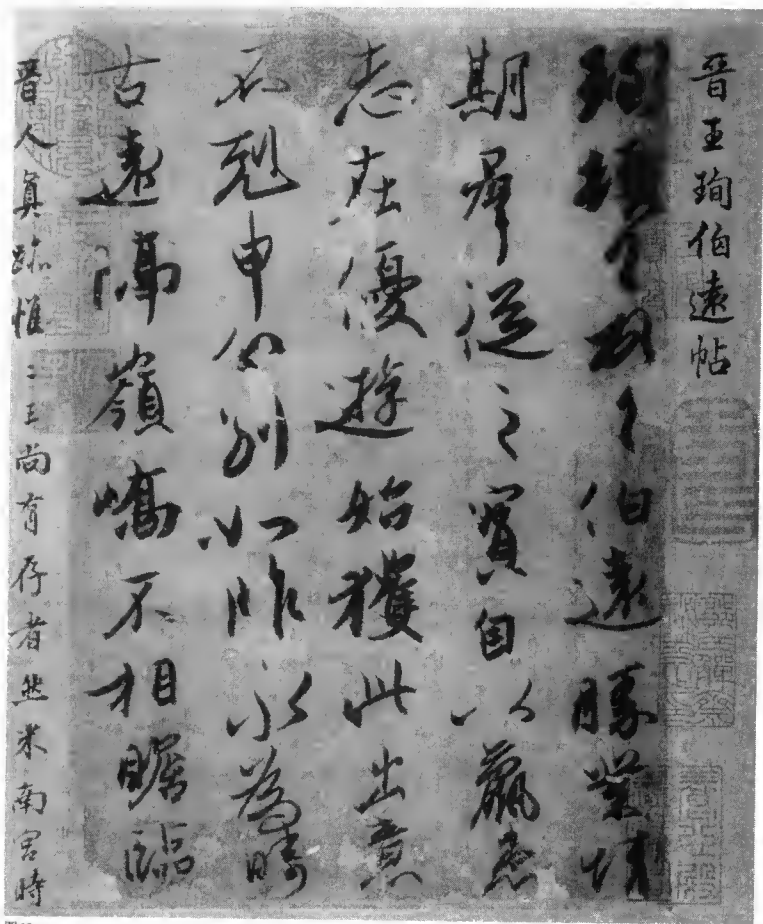 晉王珣伯遠帖
珣頓首頓首伯遠勝業情
期群從之寶自以羸患
志在優遊始獲此出意
不剋申分別如昨永為疇
古遠隔嶺嶠不相瞻臨
晉人眞跡惟二王尚有存者然米南宮時